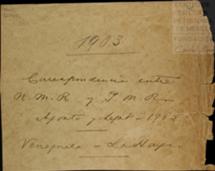 1903
Correspondencia entre
N. M. R y J. M. R
Agosto y Sept - 1903
Venezuela - La Haya